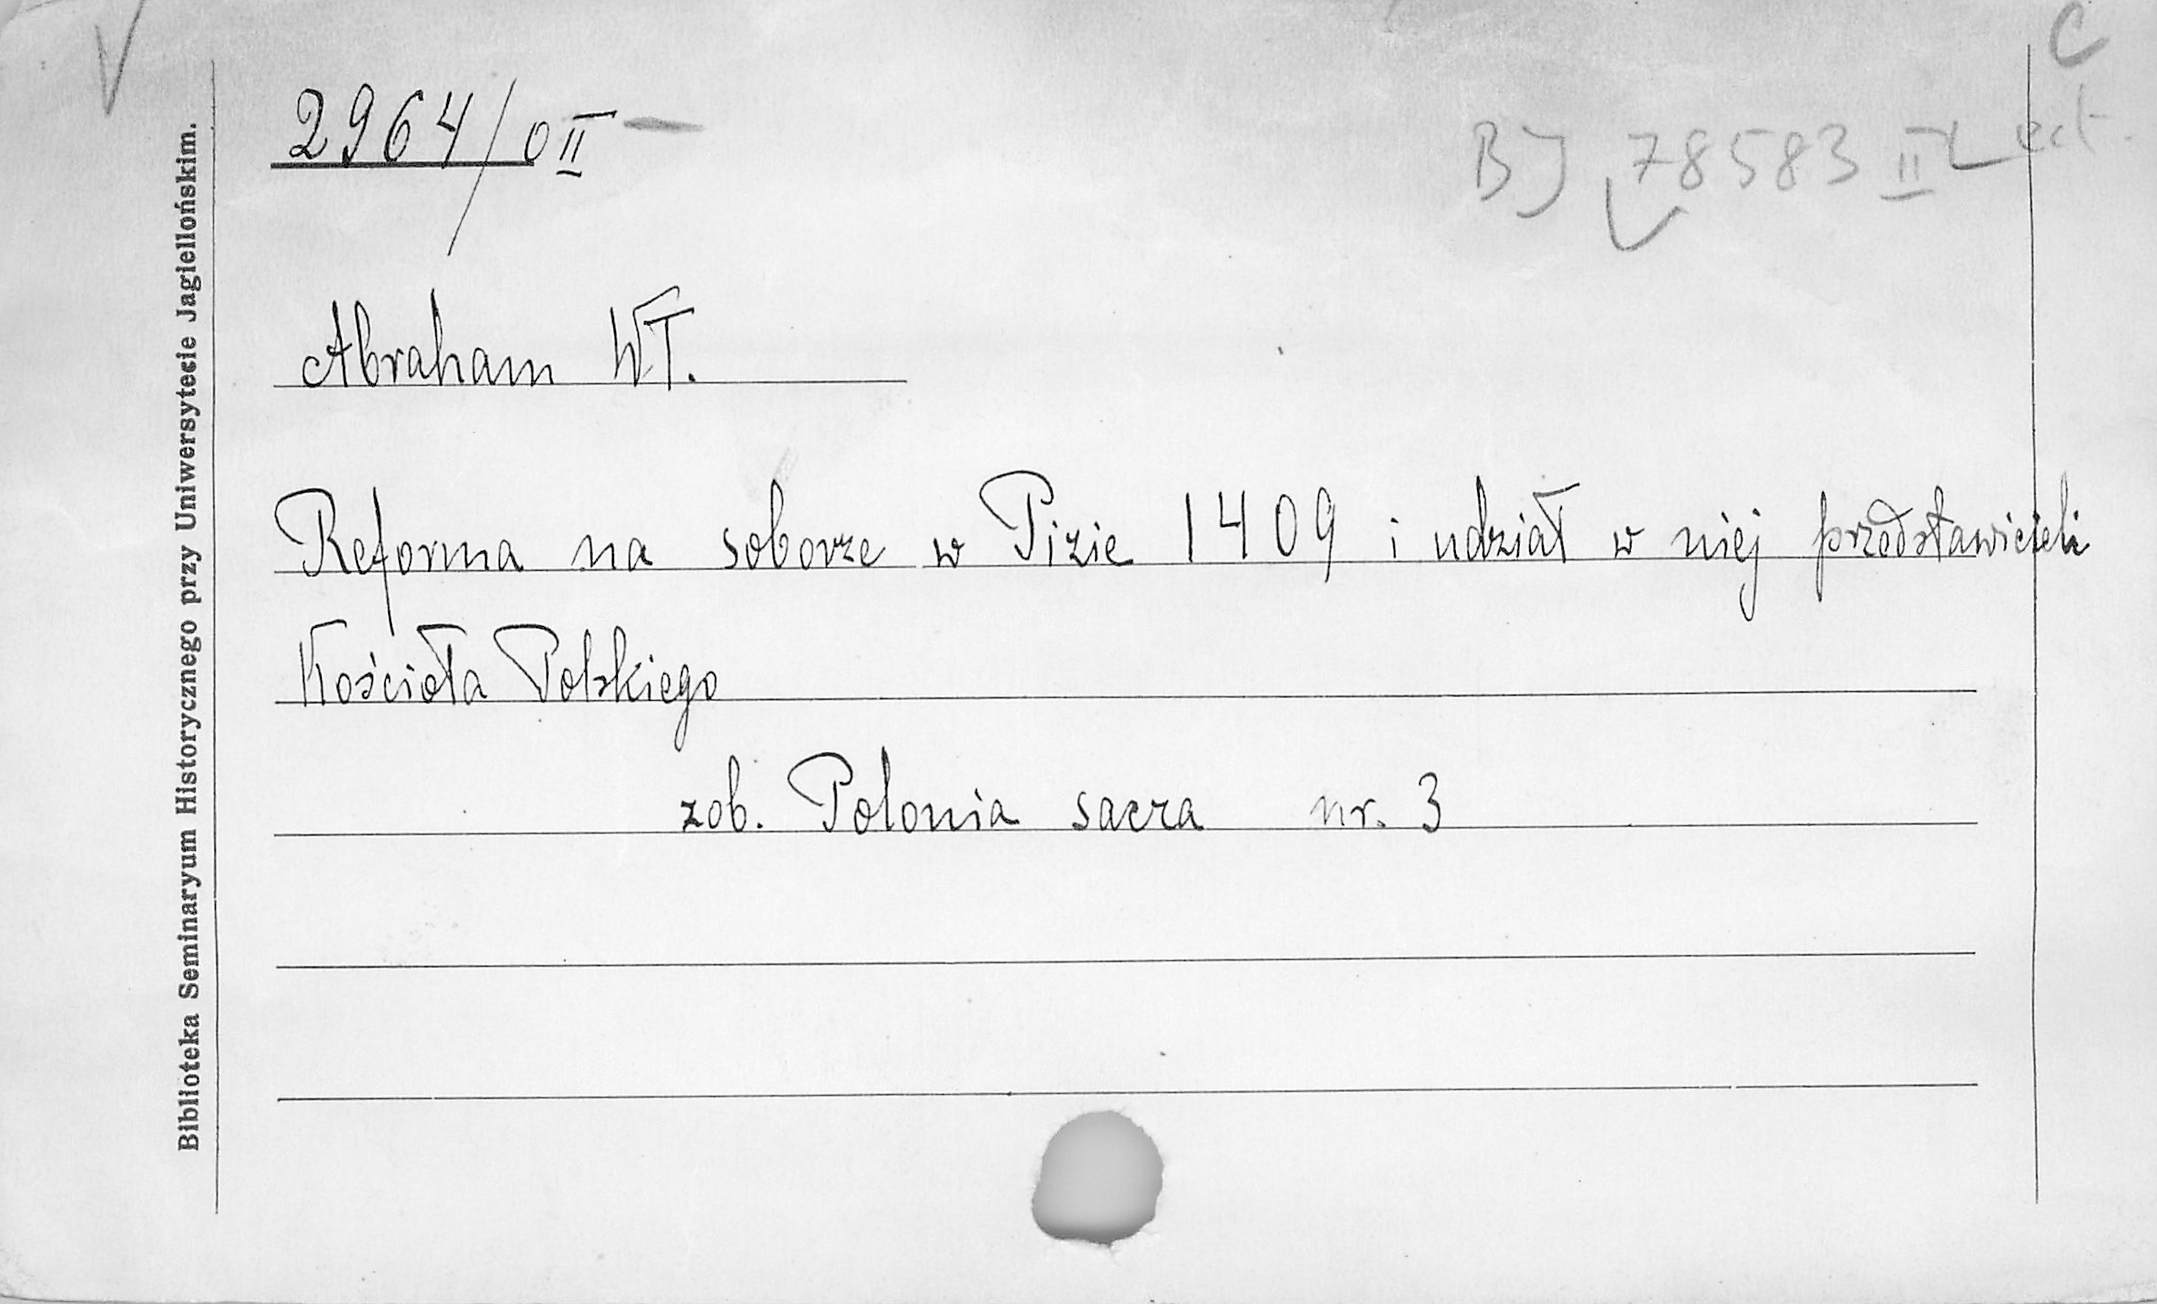 C
2964/0 II –
BJ 78583 II Lect.
Abraham Wł.
Reforma na soborze w Pizie 1409 i udział w niej przedstawicieli
Kościoła Polskiego
zob. Polonia sacra nr. 3
Biblioteka Seminaryum Historycznego przy Uniwersytecie Jagiellońskim.